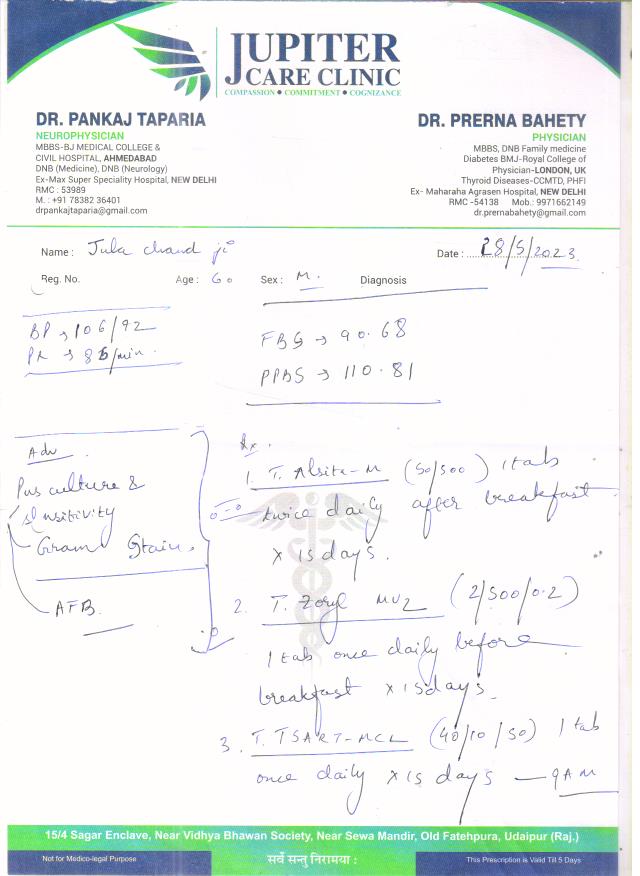 JUPITER
CARE CLINIC
COMPASSION • COMMITMENT • COGNIZANCE
DR. PANKAJ TAPARIA
NEUROPHYSICIAN
MBBS-BJ MEDICAL COLLEGE &
CIVIL HOSPITAL, AHMEDABAD
DNB (Medicine), DNB (Neurology)
Ex-Max Super Speciality Hospital, NEW DELHI
RMC : 53989
M. : +91 78382 36401
drpankajtaparia@gmail.com
DR. PRERNA BAHETY
PHYSICIAN
MBBS, DNB Family medicine
Diabetes BMJ-Royal College of
Physician-LONDON, UK
Thyroid Diseases-CCMTD, PHFI
Ex- Maharaha Agrasen Hospital, NEW DELHI
RMC -54138 Mob.: 9971662149
dr.prernabahety@gmail.com
Name : Jula chand ji
Date : 28/5/2023
Reg. No. Age : 60 Sex : M. Diagnosis
BP → 106/92
PR → 86/min.
FBS → 90.68
PPBS → 110.81
Adv
Pus culture &
sensitivity
Gram Stain
AFB.
Rx.
1. T. Alsita-M (50/500) 1 tab
twice daily after breakfast
x 15 days.
2. T. Zoryl MV2 (2/500/0.2)
1 tab once daily before
breakfast x 15 days
3. T. TSART-MCL (40/10/50) 1 tab
once daily x 15 days — 9 AM
15/4 Sagar Enclave, Near Vidhya Bhawan Society, Near Sewa Mandir, Old Fatehpura, Udaipur (Raj.)
Not for Medico-legal Purpose
सर्वे सन्तु निरामया :
This Prescription is Valid Till 5 Days